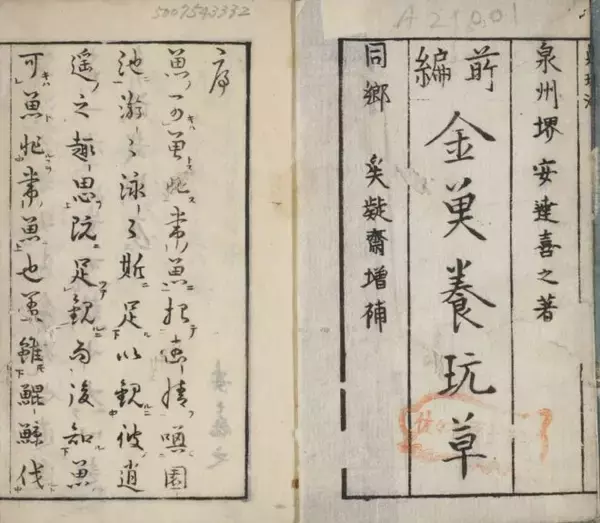 A21001
泉州堺 安達喜之著
前編 金魚養玩草
同郷 矣凝齋増補
5007543332
序
魚可魚非常魚 情 園
池游之泳之斯足以觀彼逍
遥之趣思 足觀而後知魚
可魚非常魚也 雖鯤鯨伐